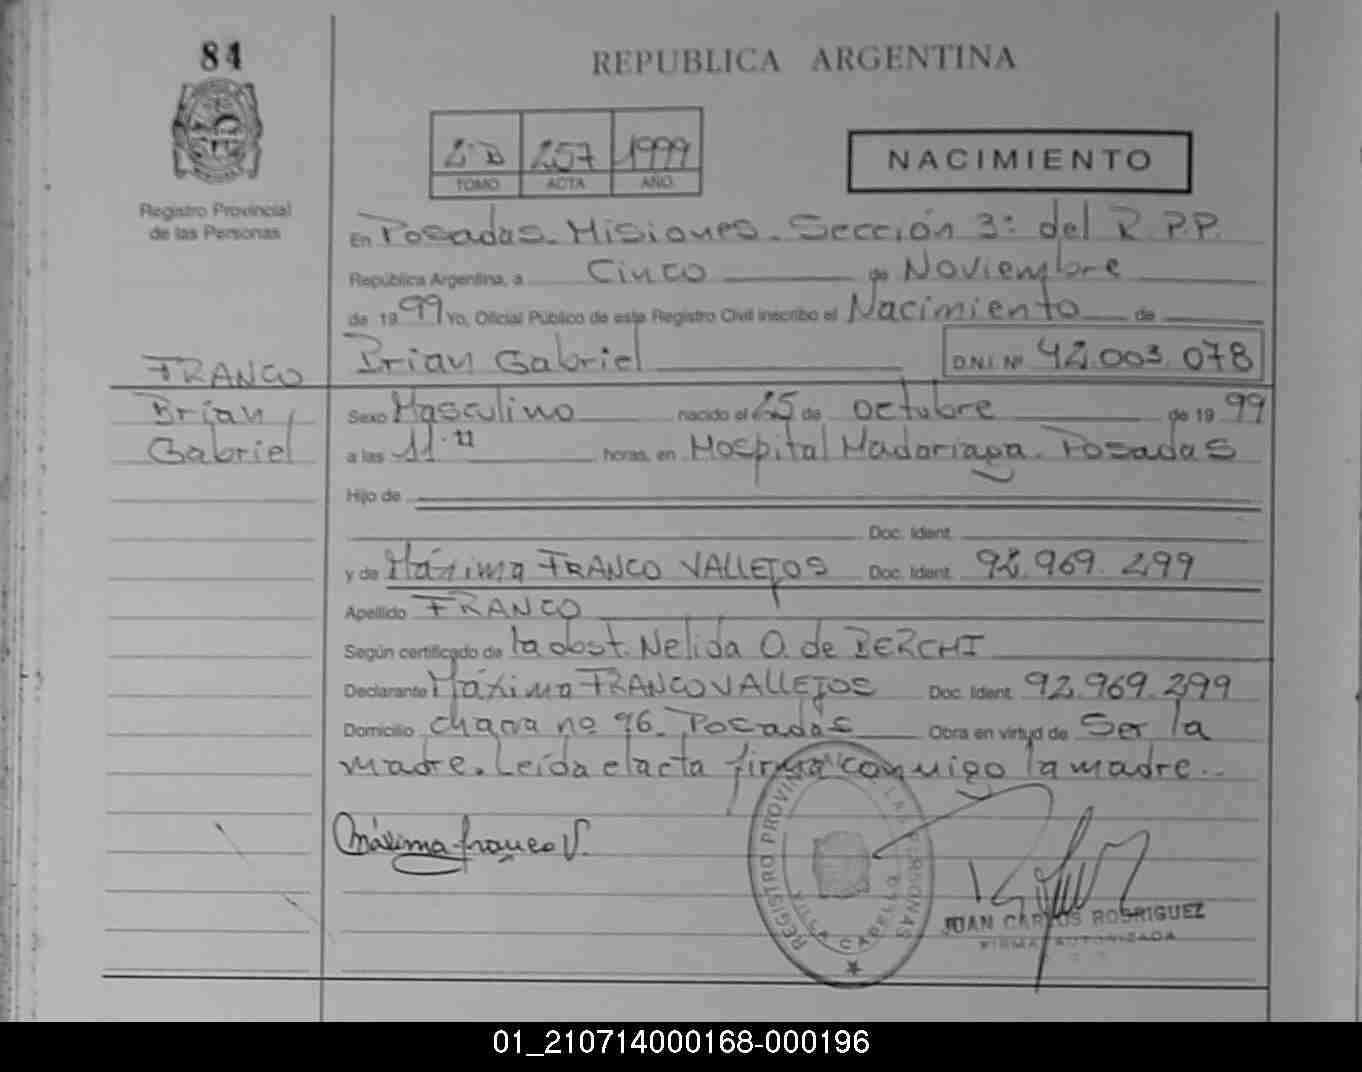 84
REPUBLICA ARGENTINA
2º D 257 1999
TOMO ACTA AÑO
NACIMIENTO
Registro Provincial
de las Personas
En Posadas. Misiones. Sección 3ª del R.P.P.
República Argentina, a Cinco de Noviembre
de 1999 Yo, Oficial Público de este Registro Civil inscribo el Nacimiento de
FRANCO Brian Gabriel D.N.I. Nº 42.003.078
Brian Sexo Masculino nacido el 25 de octubre de 1999
Gabriel a las 11 horas, en Hospital Madariaga. Posadas
Hijo de
Doc. Ident.
y de Máxima FRANCO VALLEJOS Doc. Ident. 92.969.299
Apellido FRANCO
Según certificado de la obst. Nelida O. de BERCHI
Declarante Máxima FRANCO VALLEJOS Doc. Ident. 92.969.299
Domicilio chacra nº 96. Posadas Obra en virtud de Ser la
madre. Leída el acta firma conmigo la madre..
Máxima franco V.
REGISTRO PROVINCIAL DE LAS PERSONAS
VILLA CABELLO
JUAN CARLOS RODRIGUEZ
FIRMA AUTORIZADA
01_210714000168-000196